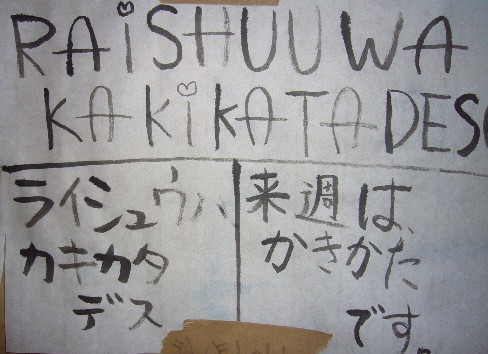 RAiSHUUWA
KAKiKATADES
ライシュウハ、
カキカタ
デス
来週は、
かきかた
です。